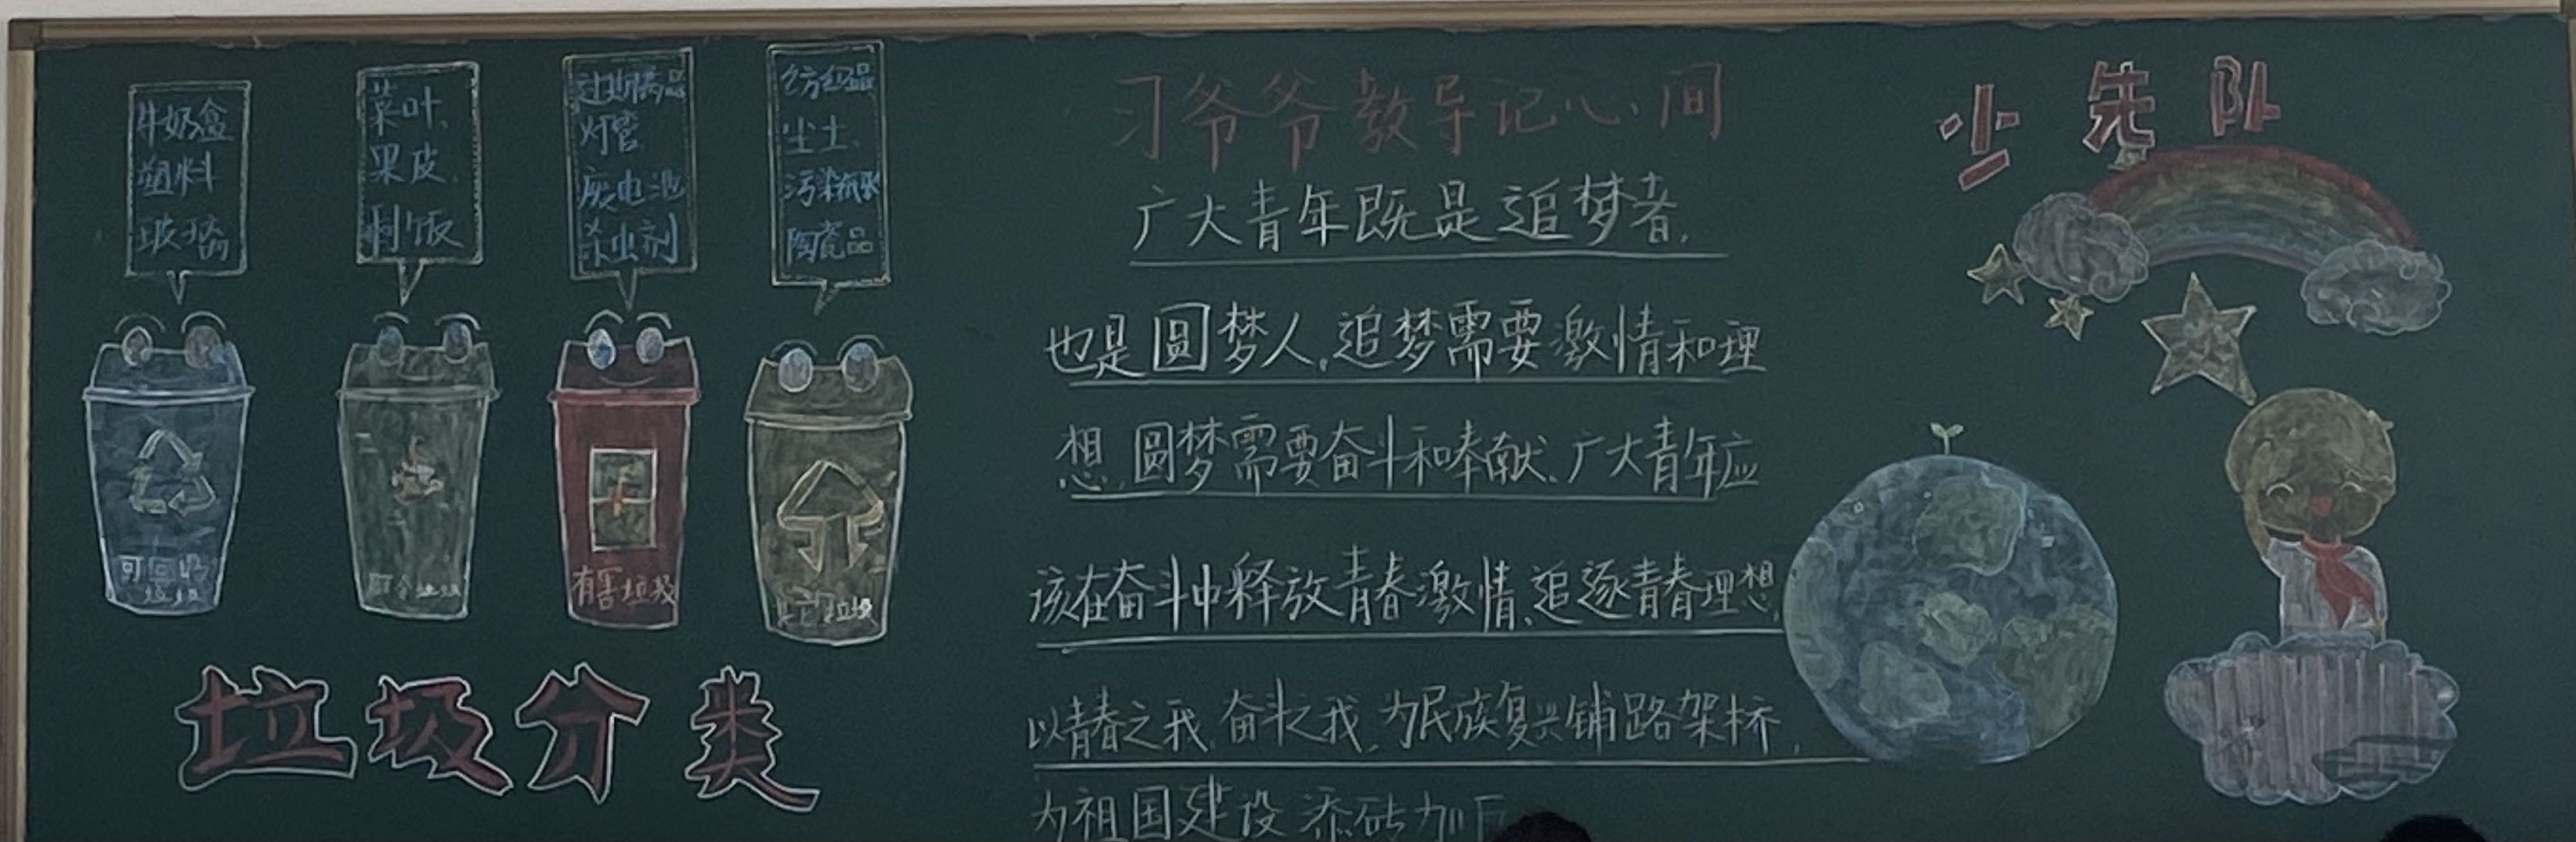 牛奶盒
塑料
玻璃
菜叶、
果皮、
剩饭
过期药品
灯管
废电池
杀虫剂
纺织品
尘土、
污染纸张
陶瓷品
可回收
垃圾
厨余垃圾
有害垃圾
其它垃圾
垃圾分类
习爷爷教导记心间
广大青年既是追梦者,
也是圆梦人,追梦需要激情和理
想,圆梦需要奋斗和奉献、广大青年应
该在奋斗中释放青春激情、追逐青春理想,
以青春之我、奋斗之我,为民族复兴铺路架桥,
为祖国建设添砖加瓦
少先队